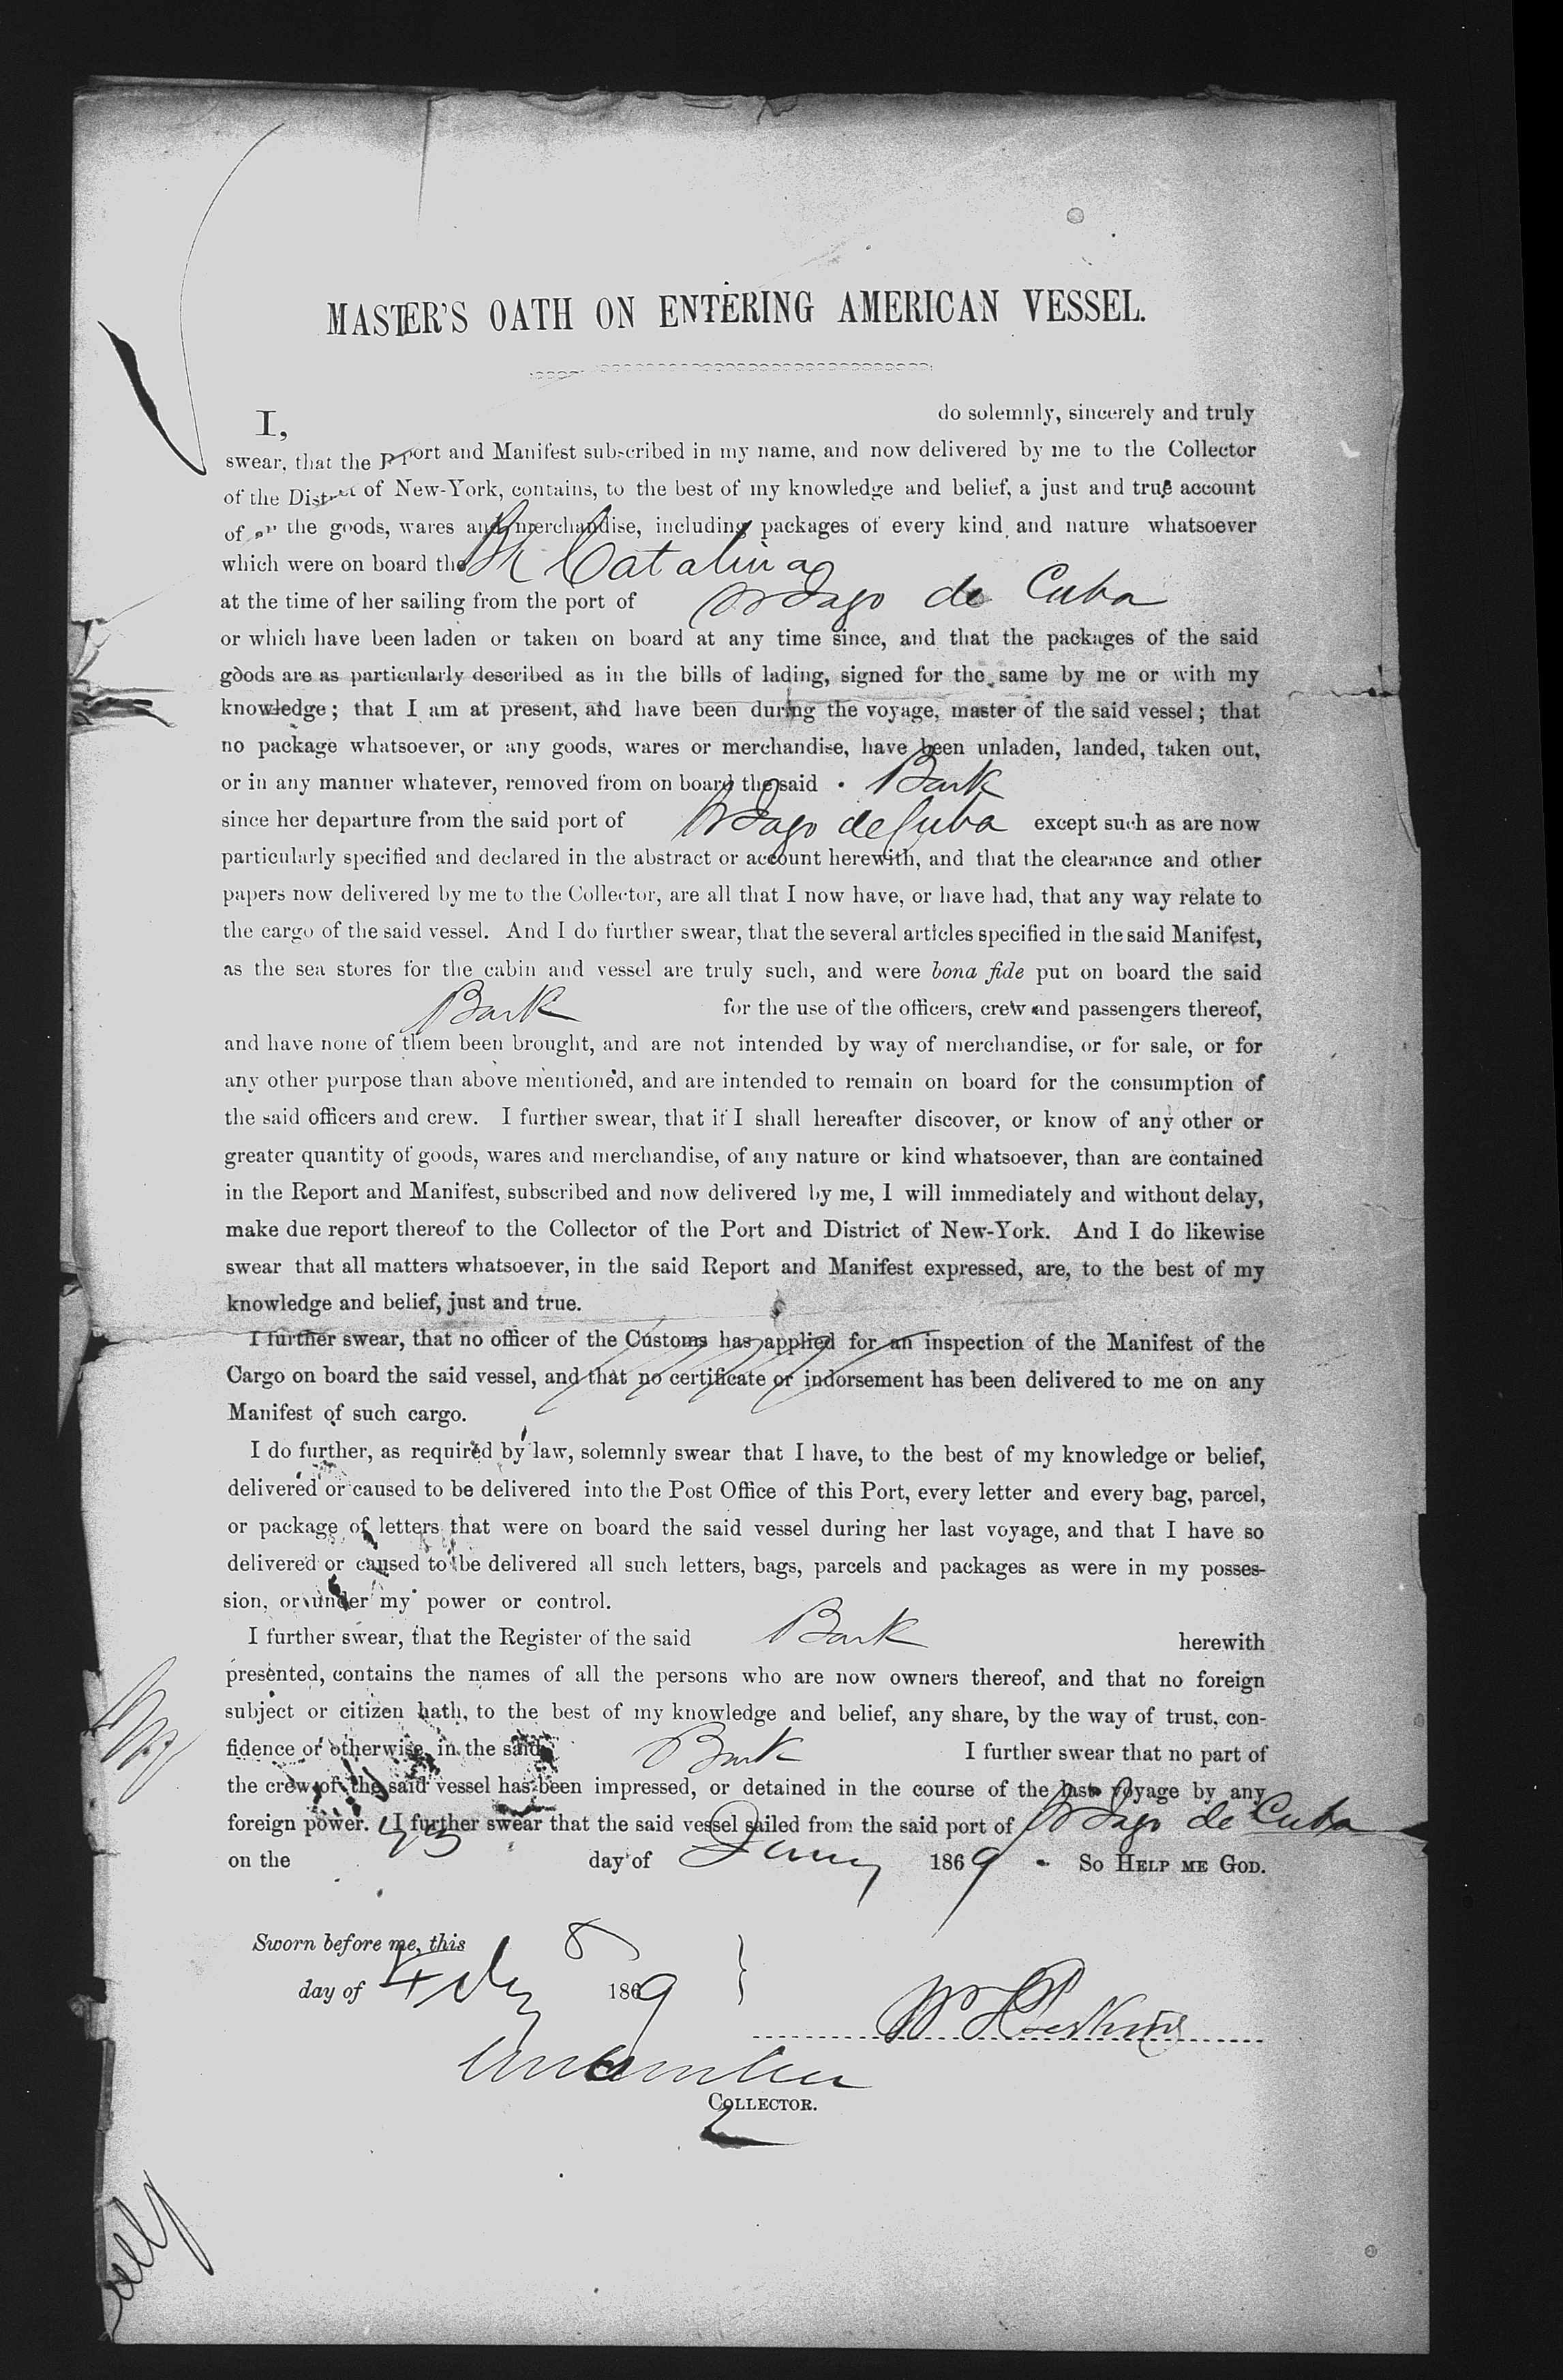 MASTER'S OATH ON ENTERING AMERICAN VESSEL.
I, do solemnly, sincerely and truly
swear, that the Report and Manifest subscribed in my name, and now delivered by me to the Collector
of the District of New-York, contains, to the best of my knowledge and belief, a just and true account
of all the goods, wares and merchandise, including packages of every kind and nature whatsoever
which were on board the Bk Catalina
at the time of her sailing from the port of St Jago de Cuba
or which have been laden or taken on board at any time since, and that the packages of the said
goods are as particularly described as in the bills of lading, signed for the same by me or with my
knowledge; that I am at present, and have been during the voyage, master of the said vessel; that
no package whatsoever, or any goods, wares or merchandise, have been unladen, landed, taken out,
or in any manner whatever, removed from on board the said Bark
since her departure from the said port of St Jago de Cuba except such as are now
particularly specified and declared in the abstract or account herewith, and that the clearance and other
papers now delivered by me to the Collector, are all that I now have, or have had, that any way relate to
the cargo of the said vessel. And I do further swear, that the several articles specified in the said Manifest,
as the sea stores for the cabin and vessel are truly such, and were bona fide put on board the said
Bark for the use of the officers, crew and passengers thereof,
and have none of them been brought, and are not intended by way of merchandise, or for sale, or for
any other purpose than above mentioned, and are intended to remain on board for the consumption of
the said officers and crew. I further swear, that if I shall hereafter discover, or know of any other or
greater quantity of goods, wares and merchandise, of any nature or kind whatsoever, than are contained
in the Report and Manifest, subscribed and now delivered by me, I will immediately and without delay,
make due report thereof to the Collector of the Port and District of New-York. And I do likewise
swear that all matters whatsoever, in the said Report and Manifest expressed, are, to the best of my
knowledge and belief, just and true.
I further swear, that no officer of the Customs has applied for an inspection of the Manifest of the
Cargo on board the said vessel, and that no certificate or indorsement has been delivered to me on any
Manifest of such cargo.
I do further, as required by law, solemnly swear that I have, to the best of my knowledge or belief,
delivered or caused to be delivered into the Post Office of this Port, every letter and every bag, parcel,
or package of letters that were on board the said vessel during her last voyage, and that I have so
delivered or caused to be delivered all such letters, bags, parcels and packages as were in my posses-
sion, or under my power or control.
I further swear, that the Register of the said Bark herewith
presented, contains the names of all the persons who are now owners thereof, and that no foreign
subject or citizen hath, to the best of my knowledge and belief, any share, by the way of trust, con-
fidence or otherwise, in the said Bark I further swear that no part of
the crew of the said vessel has been impressed, or detained in the course of the last voyage by any
foreign power. I further swear that the said vessel sailed from the said port of St Jago de Cuba
on the day of 1869 So HELP ME GOD.
Sworn before me, this 8
day of 1869
W H Perkins
COLLECTOR.